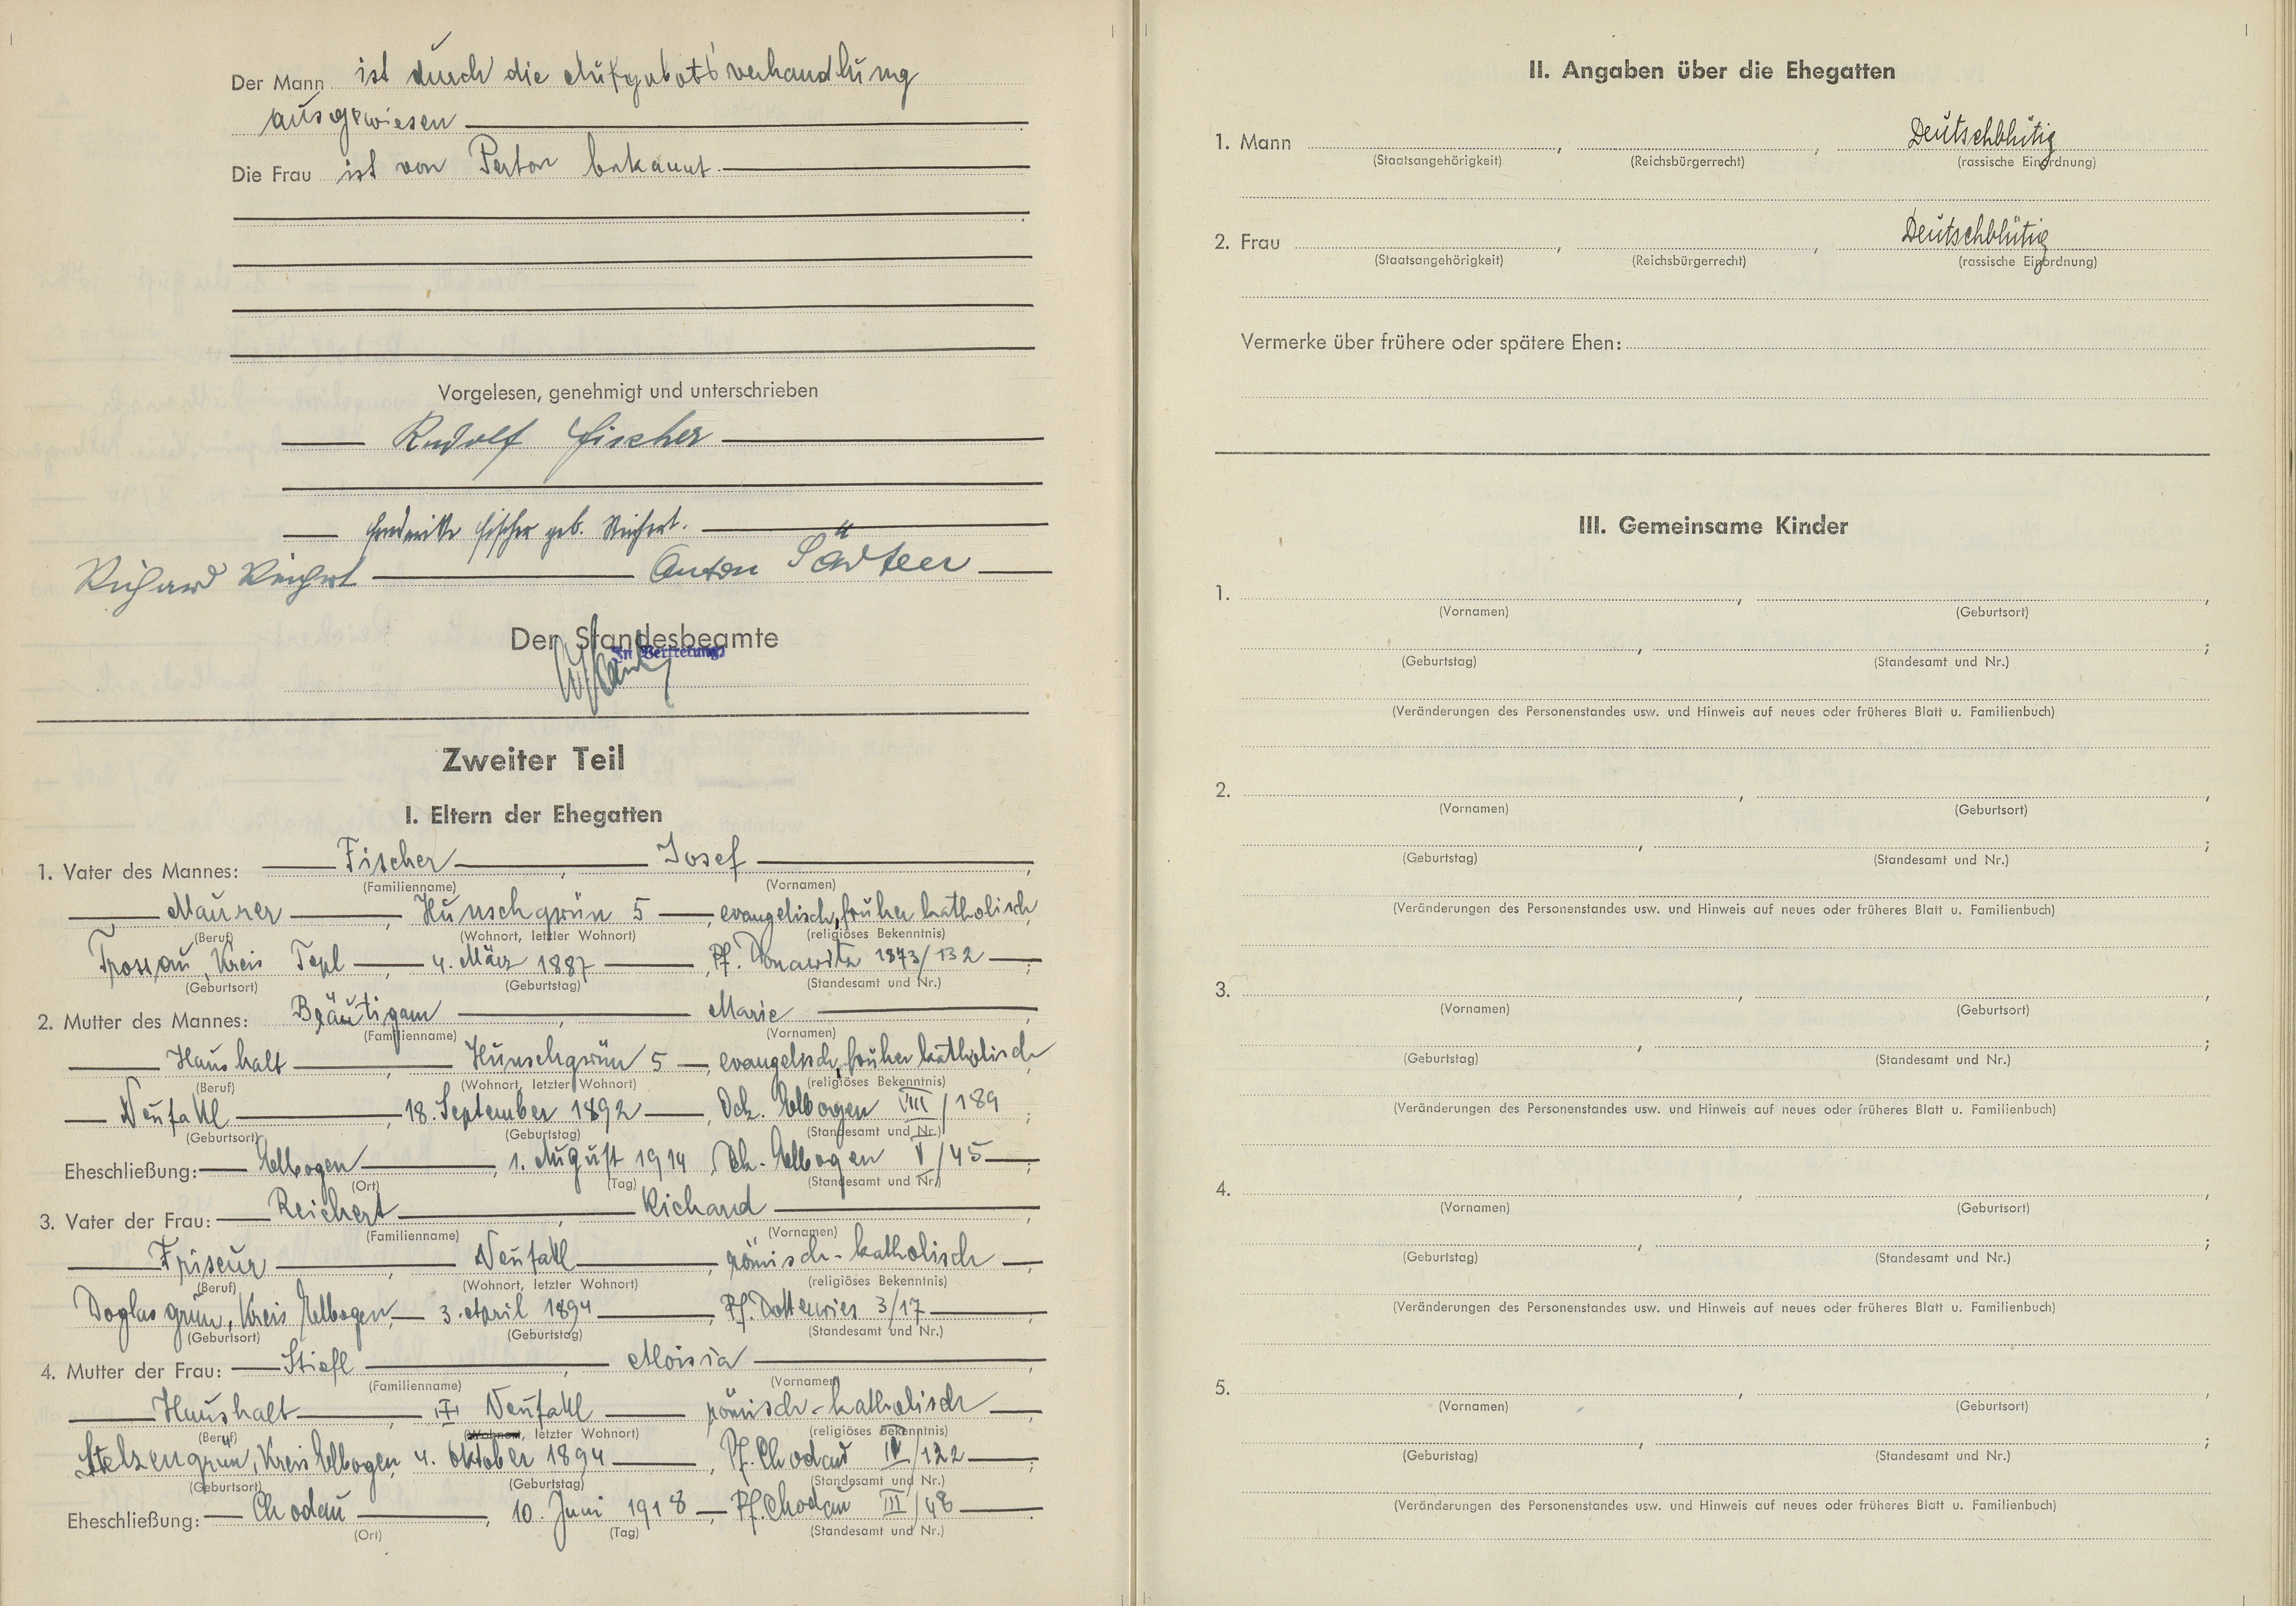 Der Mann ist durch die Aufgebotsverhandlung
ausgewiesen
Die Frau ist von Person bekannt.
Vorgelesen, genehmigt und unterschrieben
Rudolf Fischer
Friederike Fischer geb. Reichert.
Richard Reichert Anton
Der Standesbeamte
In Vertretung:
Zweiter Teil
I. Eltern der Ehegatten
1. Vater des Mannes: Fischer, Josef,
(Familienname) (Vornamen)
Maurer, Hunschgrün 5, evangelisch, früher katholisch
(Beruf) (Wohnort, letzter Wohnort) (religiöses Bekenntnis)
Trossau, Kreis Tepl, 4. März 1887, Pf. Donawitz 1873/132;
(Geburtsort) (Geburtstag) (Standesamt und Nr.)
2. Mutter des Mannes: Bräutigam, Marie,
(Familienname) (Vornamen)
Haushalt, Hunschgrün 5, evangelisch, früher katholisch
(Beruf) (Wohnort, letzter Wohnort) (religiöses Bekenntnis)
Neusattl, 18. September 1892, Dek. Elbogen VIII/189;
(Geburtsort) (Geburtstag) (Standesamt und Nr.)
Eheschließung: Elbogen, 1. August 1914, Dek. Elbogen V/45;
(Ort) (Tag) (Standesamt und Nr.)
3. Vater der Frau: Reichert, Richard,
(Familienname) (Vornamen)
Friseur, Neusattl, römisch-katholisch,
(Beruf) (Wohnort, letzter Wohnort) (religiöses Bekenntnis)
Doglasgrün, Kreis Elbogen, 3. April 1894, Pf. 3/17;
(Geburtsort) (Geburtstag) (Standesamt und Nr.)
4. Mutter der Frau: Stiefl, Aloisia,
(Familienname) (Vornamen)
Haushalt, Neusattl römisch-katholisch,
(Beruf) (Wohnort, letzter Wohnort) (religiöses Bekenntnis)
Stelzengrün, Kreis Elbogen, 4. Oktober 1894, Pf. Chodau IV/122;
(Geburtsort) (Geburtstag) (Standesamt und Nr.)
Eheschließung: Chodau, 10. Juni 1918 Pf. Chodau III/48.
(Ort) (Tag) (Standesamt und Nr.)
II. Angaben über die Ehegatten
1. Mann , , Deutschblütig
(Staatsangehörigkeit) (Reichsbürgerrecht) (rassische Einordnung)
2. Frau , , Deutschblütig
(Staatsangehörigkeit) (Reichsbürgerrecht) (rassische Einordnung)
Vermerke über frühere oder spätere Ehen:
III. Gemeinsame Kinder
1. , ,
(Vornamen) (Geburtsort)
, ;
(Geburtstag) (Standesamt und Nr.)
(Veränderungen des Personenstandes usw. und Hinweis auf neues oder früheres Blatt u. Familienbuch)
2. , ,
(Vornamen) (Geburtsort)
, ;
(Geburtstag) (Standesamt und Nr.)
(Veränderungen des Personenstandes usw. und Hinweis auf neues oder früheres Blatt u. Familienbuch)
3. , ,
(Vornamen) (Geburtsort)
, ;
(Geburtstag) (Standesamt und Nr.)
(Veränderungen des Personenstandes usw. und Hinweis auf neues oder früheres Blatt u. Familienbuch)
4. , ,
(Vornamen) (Geburtsort)
, ;
(Geburtstag) (Standesamt und Nr.)
(Veränderungen des Personenstandes usw. und Hinweis auf neues oder früheres Blatt u. Familienbuch)
5. , ,
(Vornamen) (Geburtsort)
, ;
(Geburtstag) (Standesamt und Nr.)
(Veränderungen des Personenstandes usw. und Hinweis auf neues oder früheres Blatt u. Familienbuch)